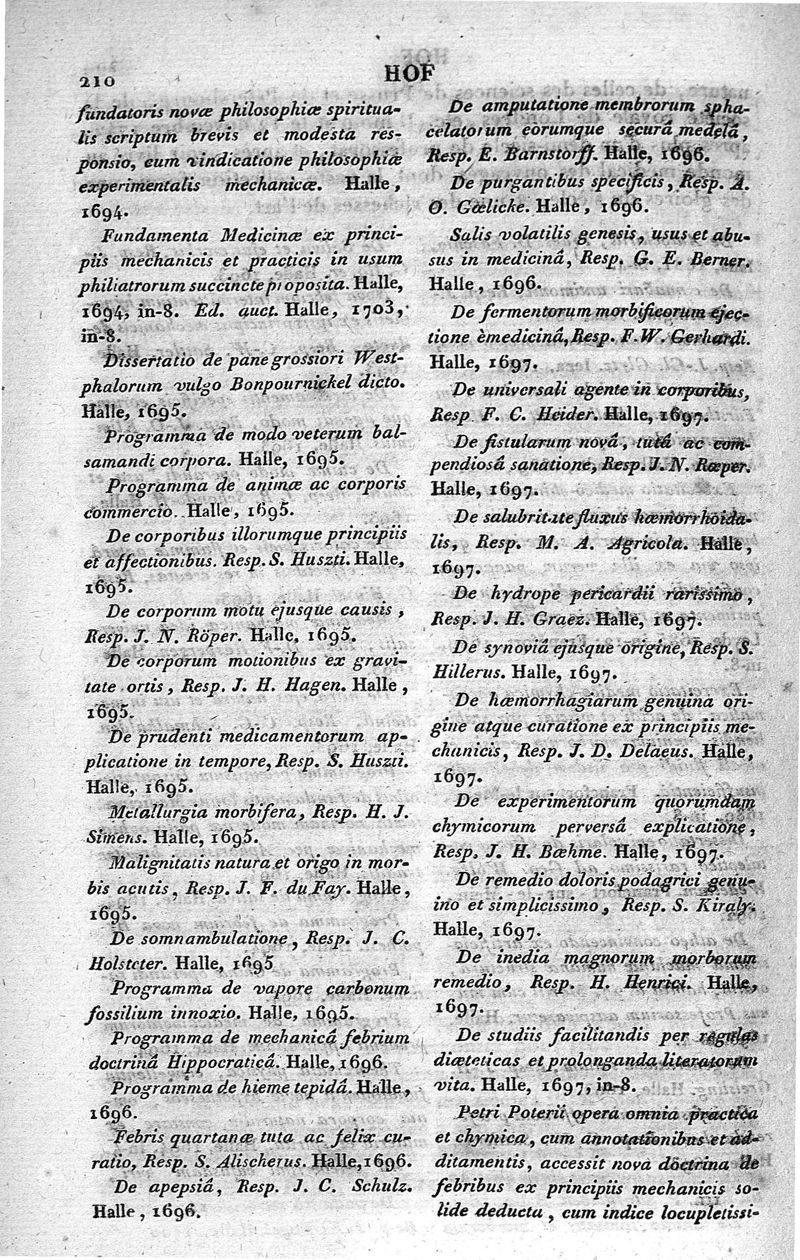 210
HOF
fundatoris novæ philosophiæ spiritua-
lis scriptum brevis et modesta res-
ponsio, cum vindicatione philosophiæ
experimentalis mechanicæ. Halle,
1694.
Fundamenta Medicinæ ex princi-
piis mechanicis et practicis in usum
philiatrorum succincte proposita. Halle,
1694, in-8. Ed. auct. Halle, 1703,
in-8.
Dissertatio de pane grossiori West-
phalorum vulgo Bonpournickel dicto.
Halle, 1695.
Programma de modo veterum bal-
samandi corpora. Halle, 1695.
Programma de animæ ac corporis
commercio. Halle, 1695.
De corporibus illorumque principiis
et affectionibus. Resp. S. Huszti. Halle,
1695.
De corporum motu ejusque causis,
Resp. J. N. Röper. Halle, 1695.
De corporum motionibus ex gravi-
tate ortis, Resp. J. H. Hagen. Halle,
1695.
De prudenti medicamentorum ap-
plicatione in tempore, Resp. S. Huszti.
Halle, 1695.
Metallurgia morbifera, Resp. H. J.
Simens. Halle, 1695.
Malignitatis natura et origo in mor-
bis acutis, Resp. J. F. du Fay. Halle,
1695.
De somnambulatione, Resp. J. C.
Holsteter. Halle, 1695
Programma de vapore carbonum
fossilium innoxio. Halle, 1695.
Programma de mechanicâ febrium
doctrinâ Hippocraticâ. Halle, 1696.
Programma de hieme tepidâ. Halle,
1696.
Febris quartanæ tuta ac felix cu-
ratio, Resp. S. Alischerus. Halle, 1696.
De apepsiâ, Resp. J. C. Schulz.
Halle, 1696.
De amputatione membrorum spha-
celatorum eorumque securâ medelâ,
Resp. E. Barnstorff. Halle, 1696.
De purgantibus specificis, Resp. A.
O. Gœlicke. Halle, 1696.
Salis volatilis genesis, usus et abu-
sus in medicinâ, Resp. G. E. Berner.
Halle, 1696.
De fermentorum morbificorum ejec-
tione èmedicinâ, Resp. F. W. Gerhardi.
Halle, 1697.
De universali agente in corporibus,
Resp F. C. Heider. Halle, 1697.
De fistularum novâ, tutâ ac com-
pendiosâ sanatione, Resp. J. N. Rœper.
Halle, 1697.
De salubritate fluxus hæmorrhoida-
lis, Resp. M. A. Agricola. Halle,
1697.
De hydrope pericardii rarissimo,
Resp. J. H. Graez. Halle, 1697.
De synoviâ ejusque origine, Resp. S.
Hillerus. Halle, 1697.
De hæmorrhagiarum genuina ori-
gine atque curatione ex principiis me-
chanicis, Resp. J. D. Delaeus. Halle,
1697.
De experimentorum quorumdam
chymicorum perversâ explicatione,
Resp. J. H. Bœhme. Halle, 1697.
De remedio doloris podagrici genu-
ino et simplicissimo, Resp. S. Kiraly.
Halle, 1697.
De inedia magnorum morborum
remedio, Resp. H. Henrici. Halle,
1697.
De studiis facilitandis per regulas
diæteticas et prolonganda literatorum
vita. Halle, 1697, in-8.
Petri Poterii opera omnia practica
et chymica, cum annotationibus et ad-
ditamentis, accessit nova doctrina de
febribus ex principiis mechanicis so-
lide deducta, cum indice locupletissi-